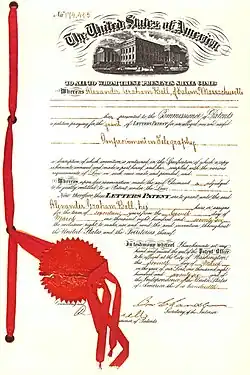 No 174,465
The United States of America
TO ALL TO WHOM THESE PRESENTS SHALL COME:
Whereas Alexander Graham Bell, of Salem, Massachusetts
has presented to the Commissioner of Patents
a petition praying for the grant of LETTERS PATENT for an alleged new and useful
Improvement in Telegraphy,
a description of which invention is contained in the Specification of which a copy
is hereunto annexed and made a part hereof, and has complied with the various
requirements of Law in such cases made and provided, and
Whereas upon due examination made the said Claimant is adjudged
to be justly entitled to a Patent under the Law.
Now therefore these LETTERS PATENT are to grant unto the said
Alexander Graham Bell, his
for the term of seventeen years from the Seventh day of
March one thousand eight hundred and seventy-six
the exclusive right to make, use and vend the said invention throughout
the United States and the Territories thereof.
In testimony whereof
Patent Office
to be affixed at the City of Washington
this Seventh day of March
in the year of our Lord one thousand eight
hundred and seventy-six and of the
Independence of the United States
of America the one hundredth.
Secretary of the Interior.